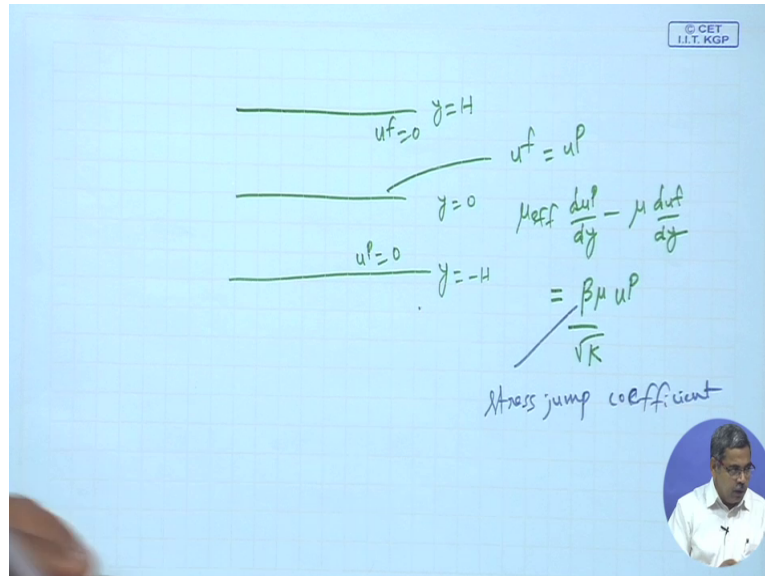 © CET
I.I.T. KGP
y=H
uf=0
uf = uP
y=0
μeff duP/dy - μ duf/dy
uP=0
y=-H
= βμ uP
√K
stress jump coefficient